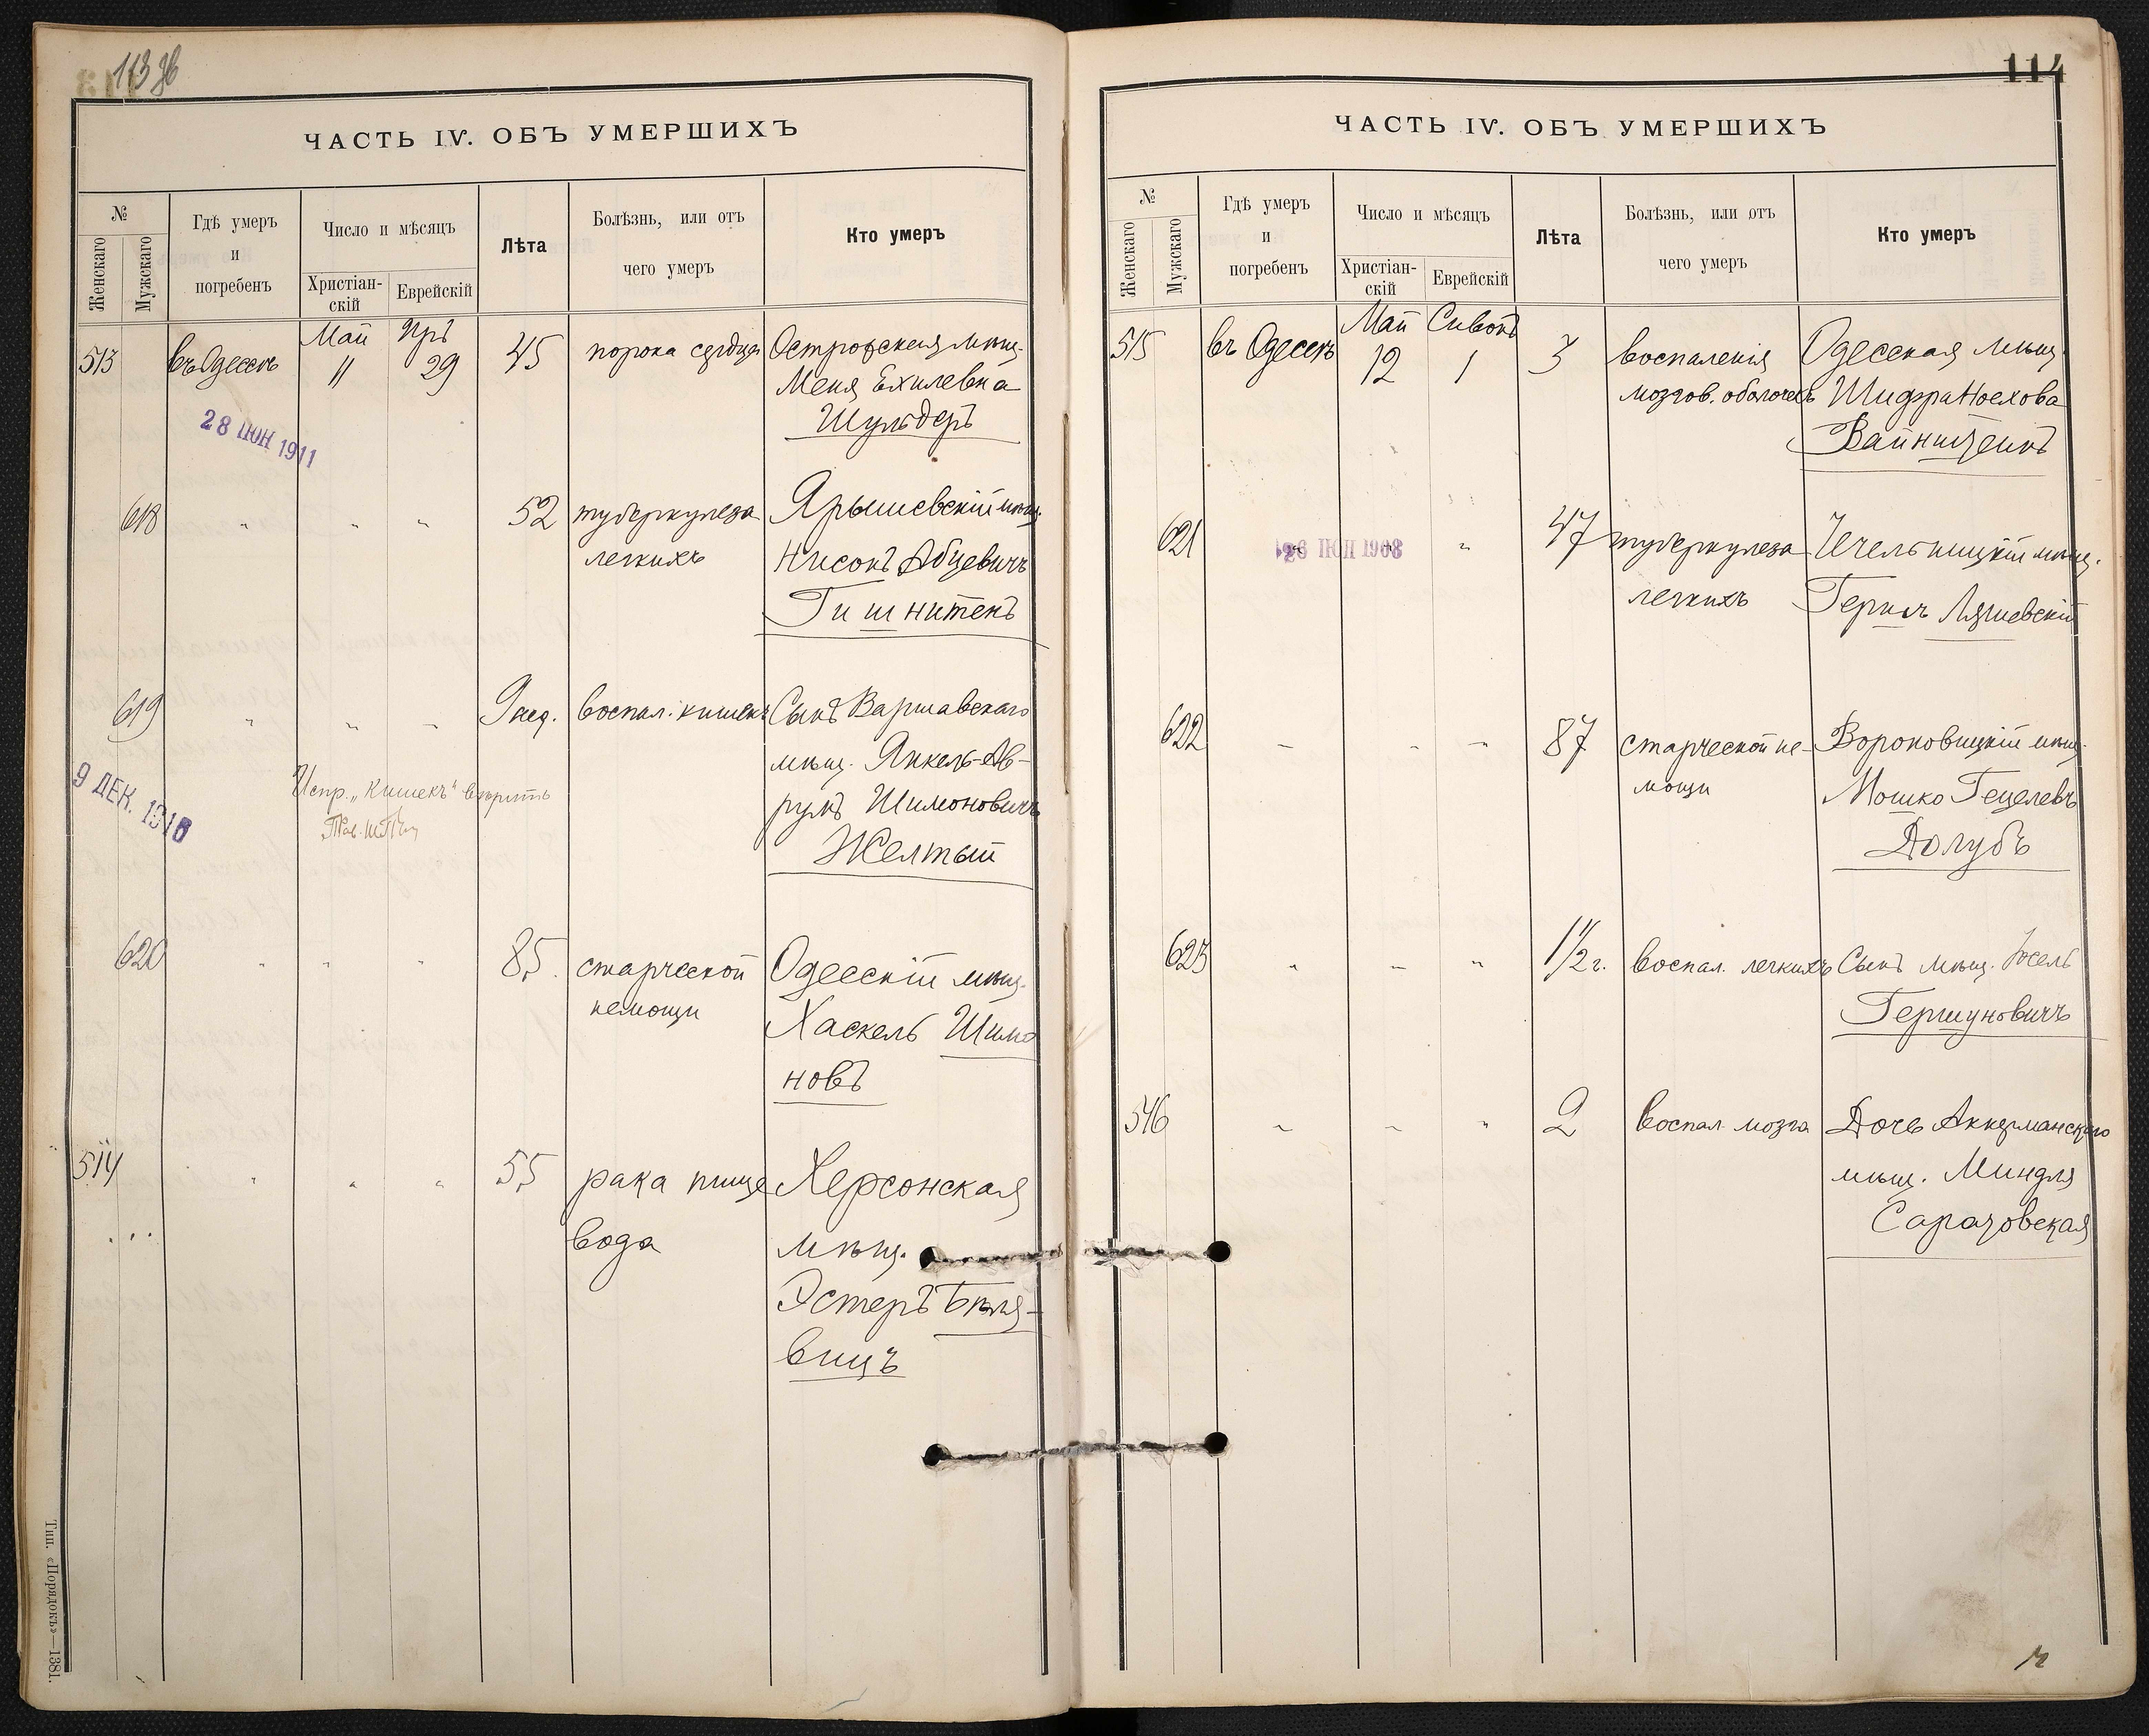 113 об
ЧАСТЬ IV. ОБЪ УМЕРШИХЪ
№
Женскаго
Мужскаго
Гдѣ умеръ
и
погребенъ
Число и мѣсяцъ
Христіан-
скій
Еврейскій
Лѣта
Болѣзнь, или отъ
чего умеръ
Кто умеръ
513
въ Одессѣ
Май
11
Иръ
29
45
порока сердца
Островская мѣщ.
Меня Ехилевна
Шульдеръ
28 ІЮН 1911
618
" " "
52
туберкулеза
легкихъ
Ярышевскій мѣщ.
Нисонъ Абцевичъ
Гишнитенъ
619
" " "
9 мѣс.
воспал. кишекъ
Сынъ Варшавскаго
мѣщ. Янкель-Ав-
румъ Шимоновичъ
Желтый
9 ДЕК. 1916
Испр. „Кишекъ" вѣрить
620
" " "
85
старческой
немощи
Одесскій мѣщ.
Хаскель Шимо
новъ
514
" " "
55
рака пище
вода
Херсонская
мѣщ.
Эстеръ Бѣля-
вицъ
Тип. «Порядокъ»—1381.
114
ЧАСТЬ IV. ОБЪ УМЕРШИХЪ
№
Женскаго
Мужскаго
Гдѣ умеръ
и
погребенъ
Число и мѣсяцъ
Христіан-
скій
Еврейскій
Лѣта
Болѣзнь, или отъ
чего умеръ
Кто умеръ
515
въ Одессѣ
Май
12
Сивонъ
1
3
воспаленія
мозгов. оболочекъ
Одесская мѣщ.
Шифра Ноехова
Вайнштейнъ
621
26 ІЮЛ 1908
"
47
туберкулеза
легкихъ
Чечельницкій мѣщ.
Гершъ
622
" " "
87
старческой не-
мощи
Вороновицкій мѣщ.
Мошко Гецелевъ
Долубъ
623
" " "
1½ г.
воспал. легкихъ
Сынъ мѣщ. Іосель
Гершуновичъ
516
" " "
2
воспал. мозга
Дочь Аккерманскаго
мѣщ. Миндля
Сарацовская